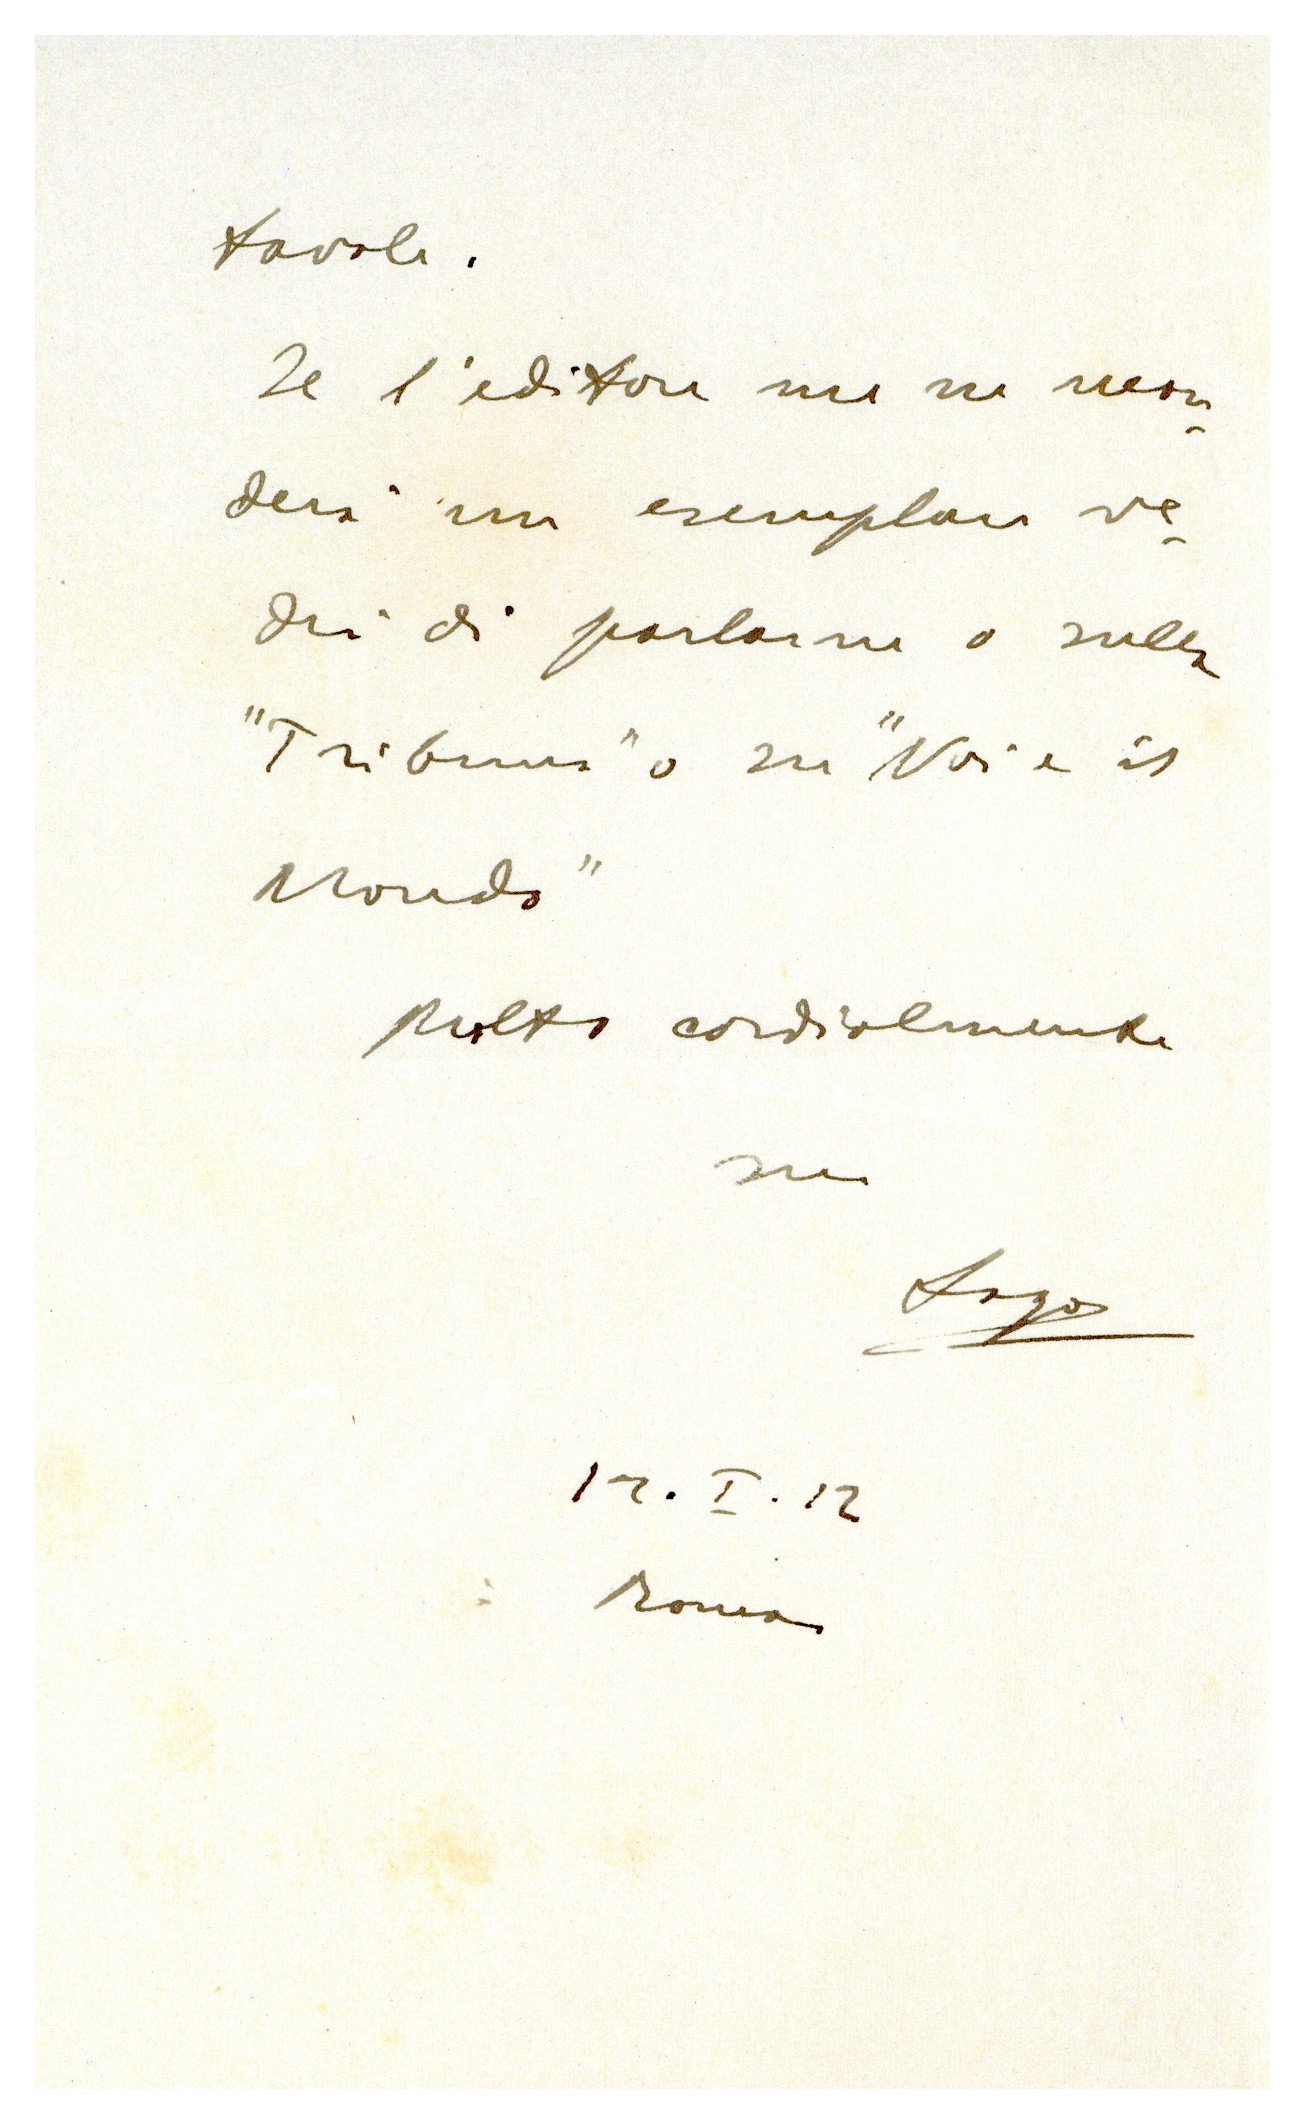 tavole.
Se l'editore me ne man-
derà un esemplare ve-
drò di parlarne o sulla
"Tribuna" o su "Noi e il
Mondo"
Molto cordialmente
suo
12. I. 12
Roma